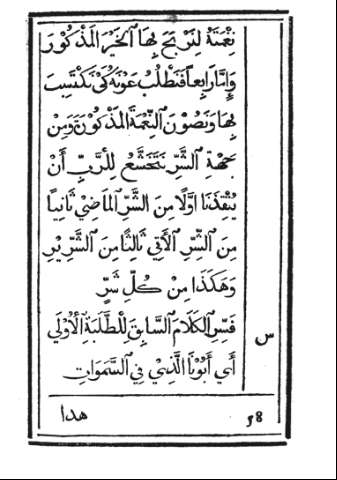 نِعْمَتَهُ لِنَرْبَحَ بِهَا ٱلْخَيْرَ ٱلْمَذْكُورَ
وَإِمَّا رَابِعاً فَنَطْلُبُ عَوْنَهُ كَيْ نَكْتَسِبَ
بِهَا وَنَصُوْنَ ٱلنِّعْمَةَ ٱلمَذْكُوْرَةَ وَمِنْ
جِهَةِ ٱلشَّرِّ نَتَخَشَّعُ لِلرَّبِّ أَنْ
يُنْقِذَنَا اوَّلًا مِنَ ٱلشَّرِّ ٱلمَاضِيْ ثَانِياً
مِنَ ٱلشَّرِّ ٱلْآتِيْ ثَالِثًا مِنَ ٱلشَّرِّيْرِ
وَهٰكَذَا مِنْ كُلِّ شَرٍّ
فَسِّرِ ٱلْكَلَامَ ٱلسَّابِقَ لِلطَّلِبَةِ ٱلْأُوْلَي
س
أَيْ أَبُوْنَا ٱلَّذِيْ فِي ٱلسَّمَوَاتِ
هذا